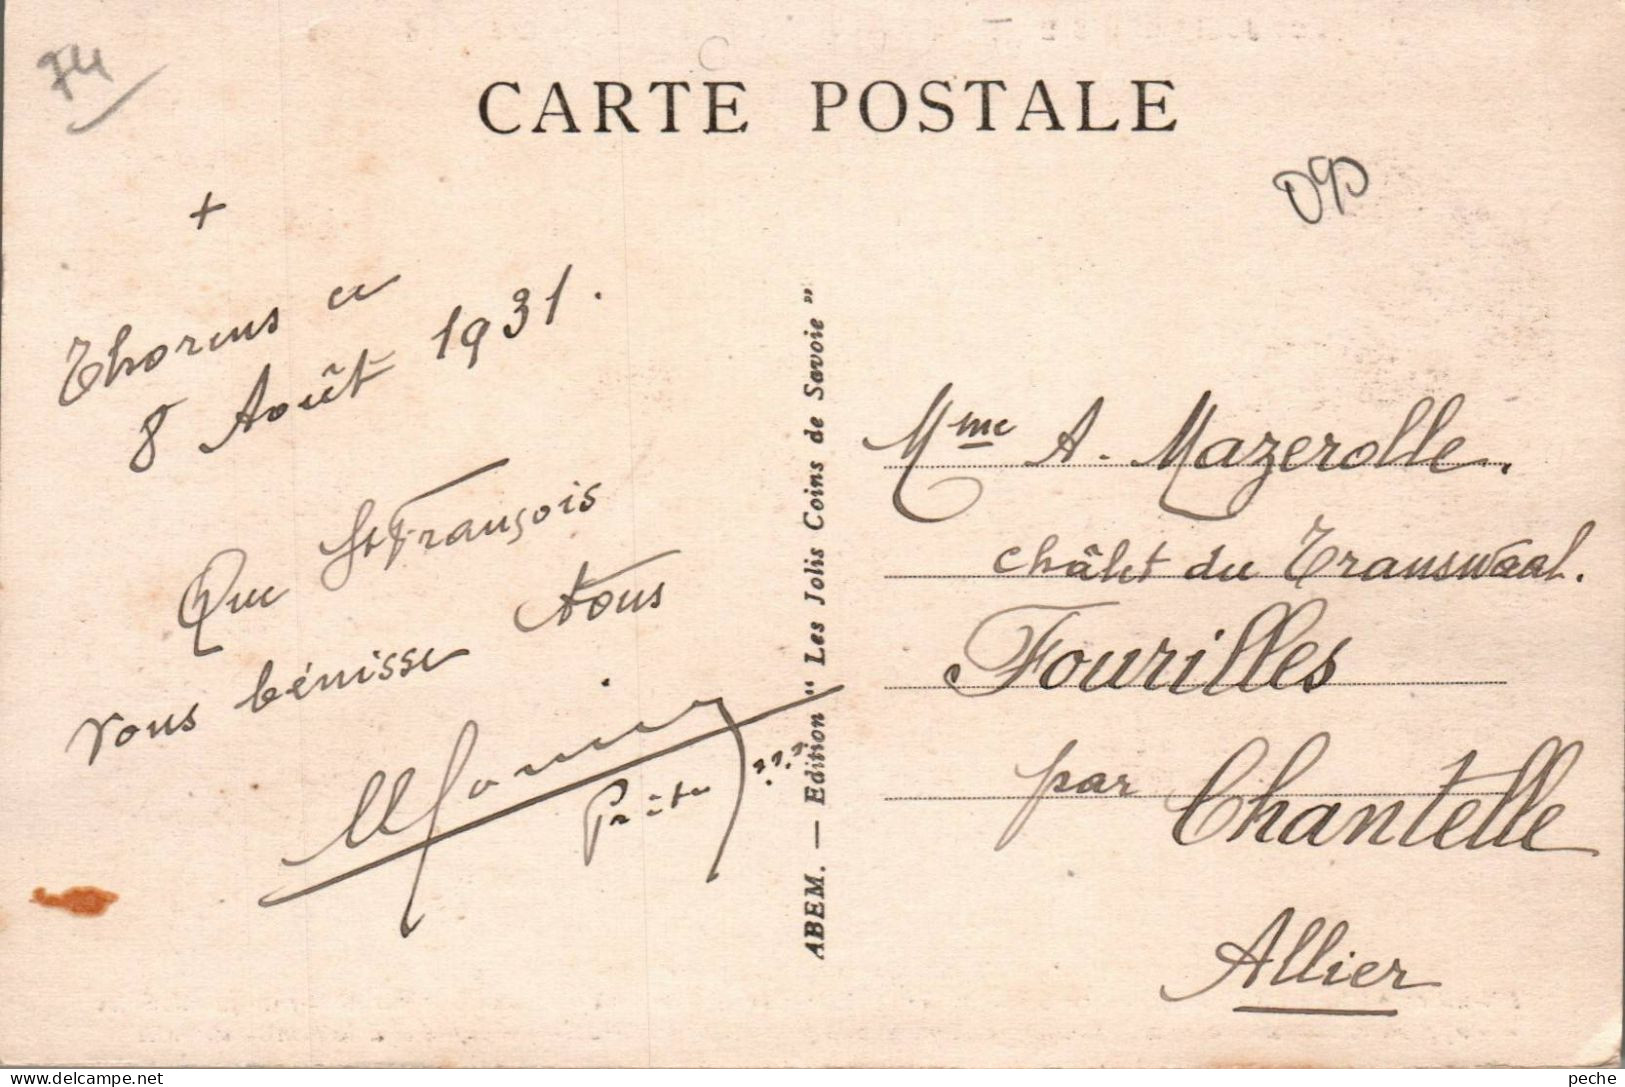 74
CARTE POSTALE
+
Thorens le
8 Août 1931.
Que St François
vous bénisse tous
Prêtre
ABEM. — Edition " Les Jolis Coins de Savoie "
Mme A. Mazerolle.
châlet du Transwaal.
Fourilles
par Chantelle
Allier
peche